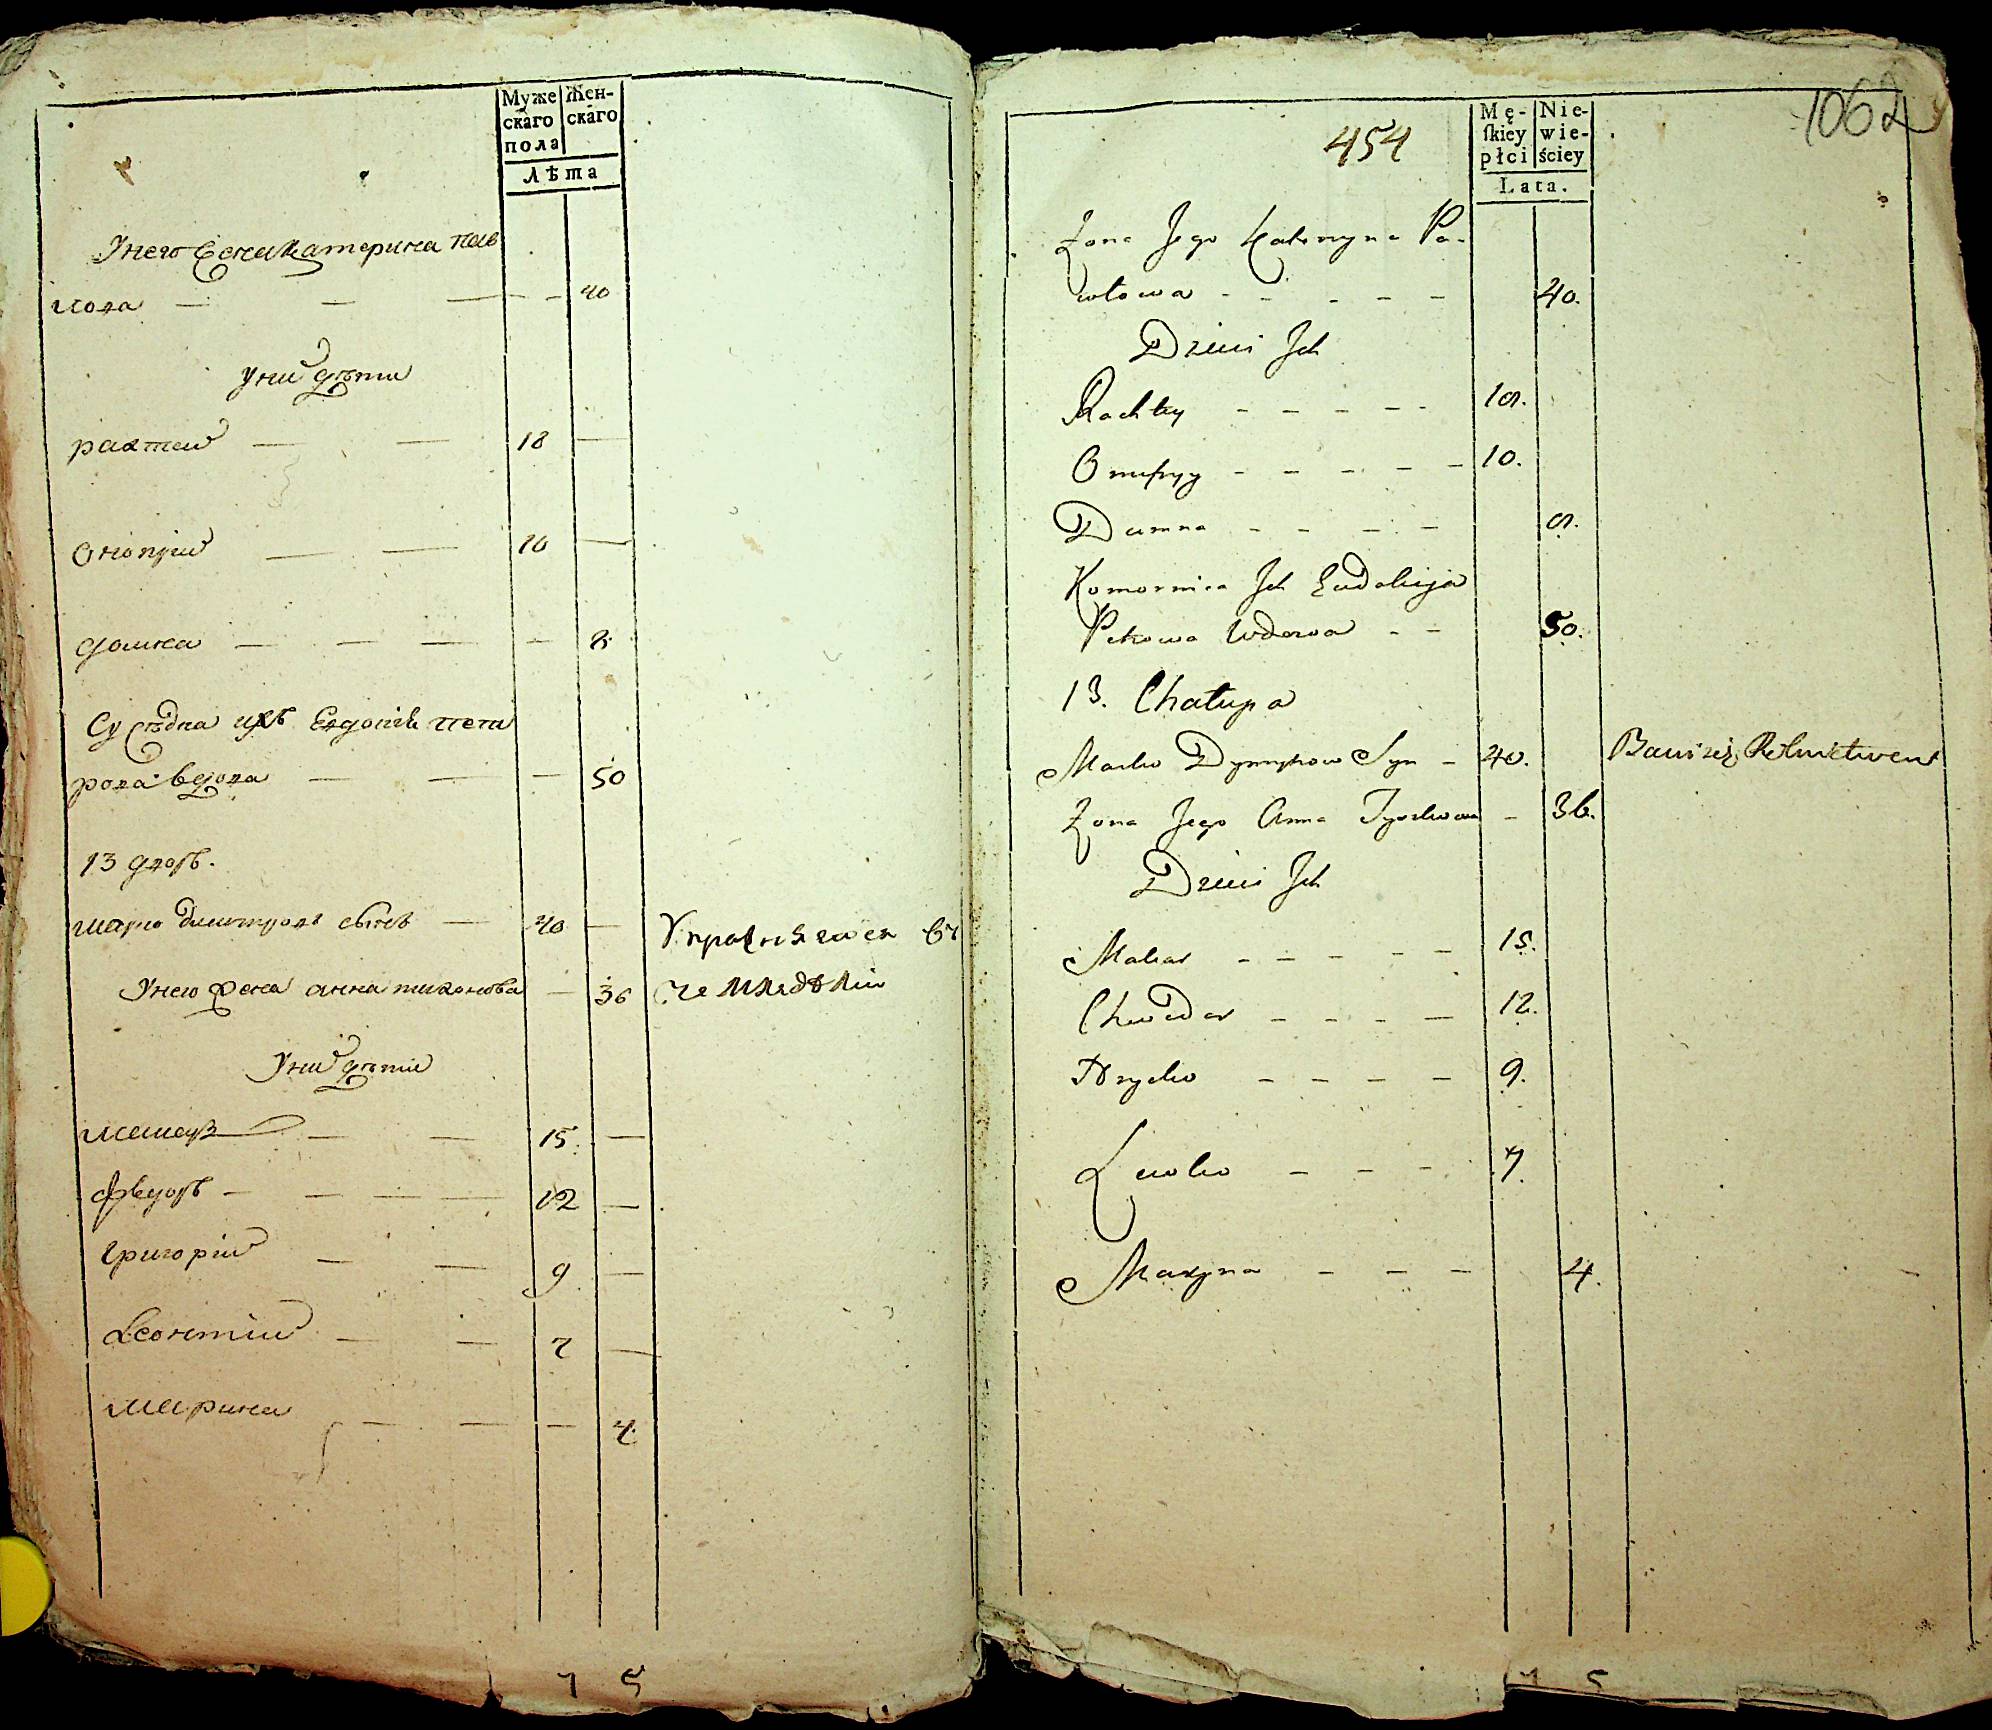 Муже
скаго
пола
Жен-
скаго
лѣта
У него жена Катерина пав
лова — — — — 40
У ниⷯ дѣти
рахтеи — — 18 —
Онопріи — — 10 —
домна — — — — 8.
Сусѣдка ихъ Евдокія пет
рова вдова — — — 50
13 дворъ.
Марко Дмитровъ сынъ — 40 —
Упражняется въ
земледѣліи
У него жена анна тихонова — 36
У ниⷯ дѣти
макаръ — — 15. —
Федоръ — — — — 12 —
Григоріи — — 9 —
Леонтіи — — 7 —
Марина — — — 4.
7 5
1062
454
Mę-
skiey
płci
Nie-
wie-
ściey
Lata.
Żona Jego Katerzyna Pa-
włowa - - - - - 40.
Dzieci Jch
Rachtey - - - - - 18.
Onufryy - - - - - 10.
Dumna - - - - 8.
Komornica Jch Ewdokija
Petrowa Wdowa - - 50.
13. Chałupa
Marko Dymytrow Syn - 40.
Bawi się Rolnictwem
Żona Jego Anna Tychonowa - 36.
Dzieci Jch
Makar - - - - - 15.
Chwedor - - - - 12.
Hryćko - - - - 9.
Lewko - - - 7.
Maryna - - - 4.
7 5